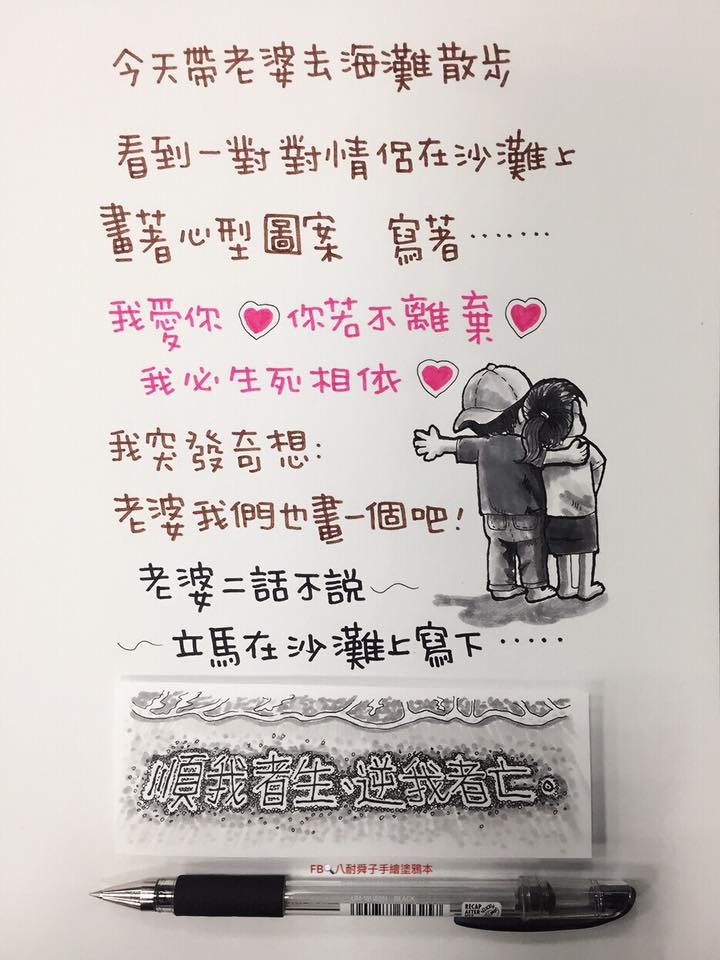 今天帶老婆去海灘散步
看到一對對情侶在沙灘上
畫著心型圖案 寫著‥‥‥‥
我愛你 你若不離棄
我必生死相依
我突發奇想:
老婆我們也畫一個吧!
老婆二話不說～
～立馬在沙灘上寫下‥‥‥
順我者生、逆我者亡。
FB🔍八耐舜子手繪塗鴉本
BLACK
RECAP
AFTER